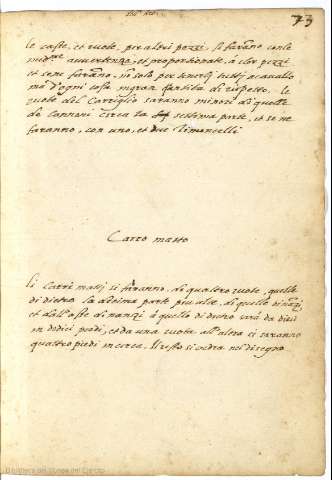 73
le casse, et ruote, per altri pezzi si faranno con le
med.me avvertenze, et proportionate, a lor pezzi
et se ne faranno, nõ solo per tenerli tutti a cavallo
ma d'ogni cosa in gran quantità di rispetto. le
ruote del Carriglio saranno minori di quelle
de cannoni circa la settima parte, et se ne
faranno, con uno, et due Timoncelli
Carro matto
li Carri matti si faranno di quattro ruote, quelle
di dietro la decima parte piu alte, di quelle dinãzi,
et dall'asse dinanzi à quello di dietro verà da dieci
in dodici piedi, et da una ruota all'altra ci seranno
quattro piedi in circa. Il resto si vedrà nel disegno.
Biblioteca del Museo del Ejército